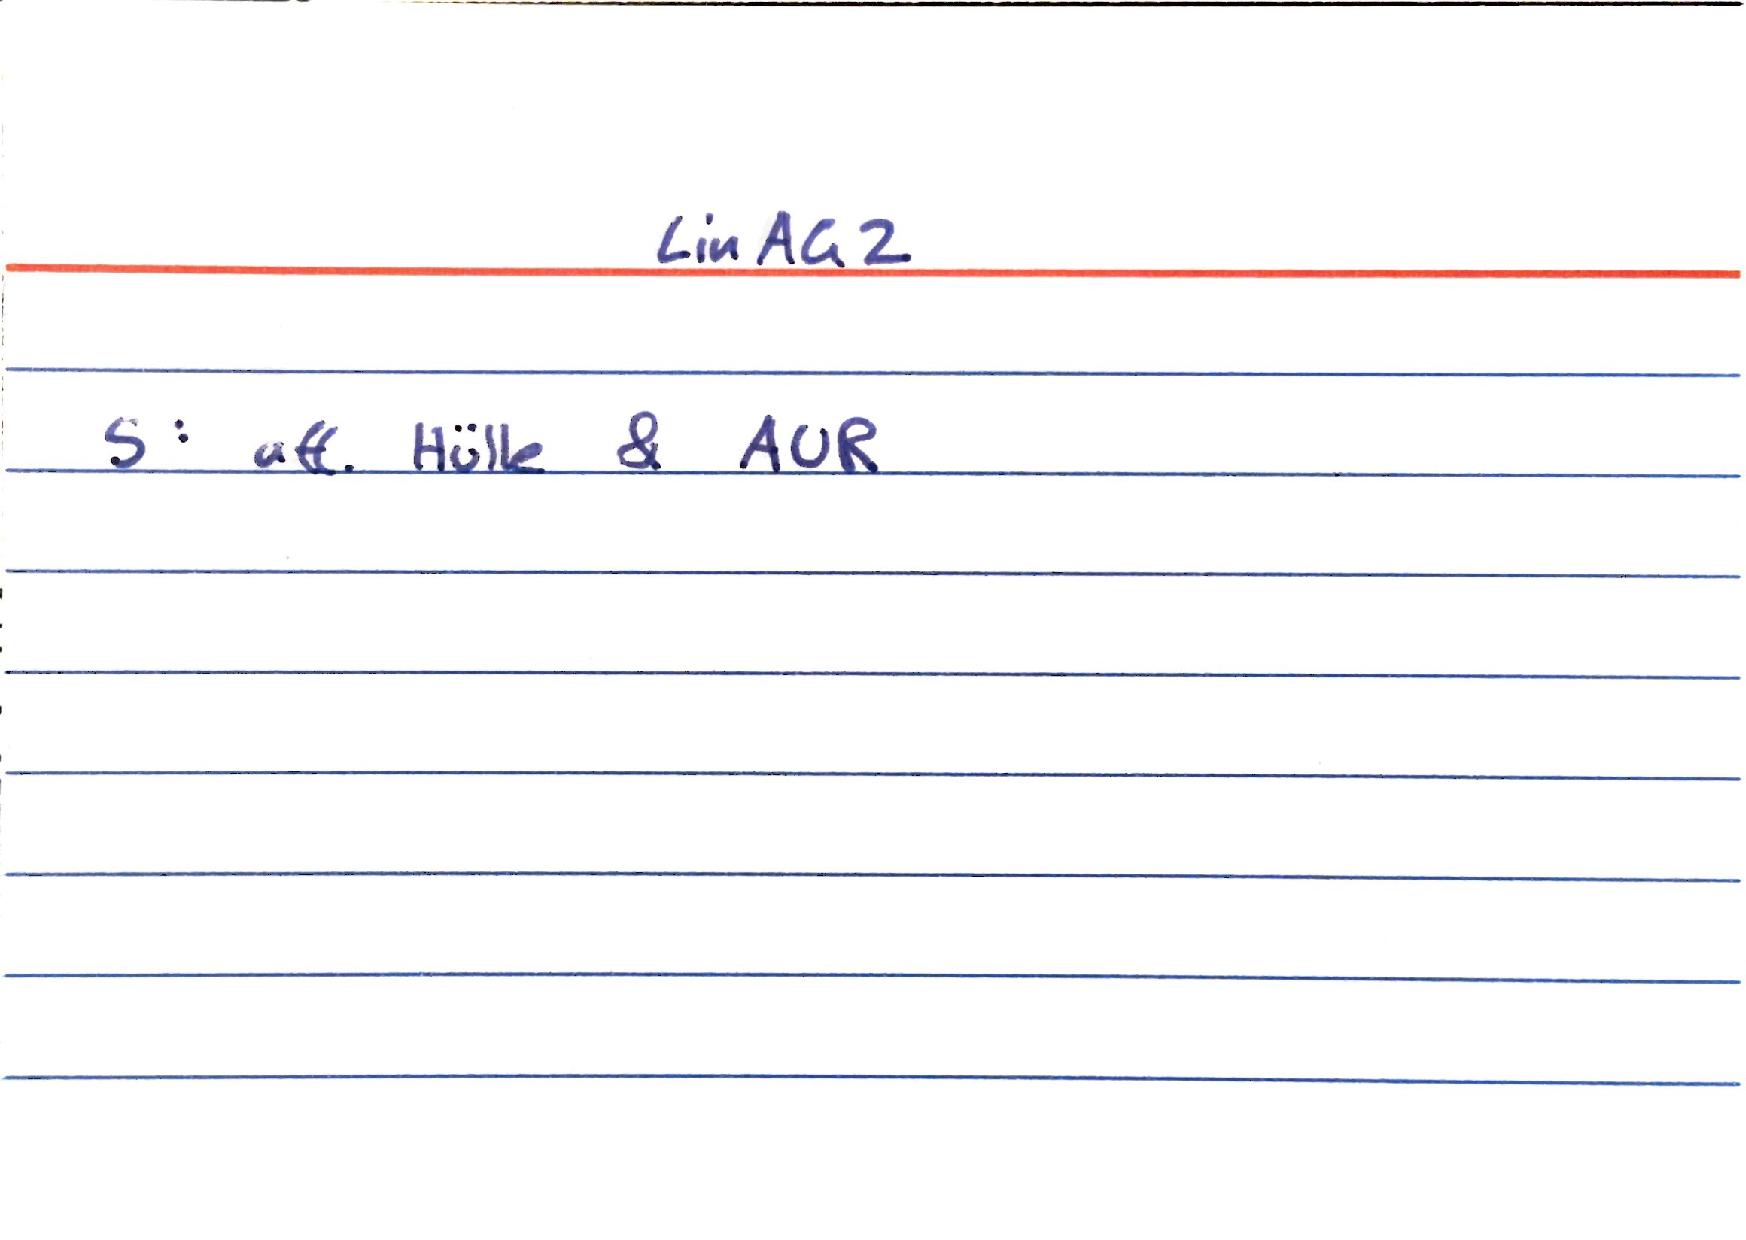 Lin AG 2
S: aff. Hülle & AUR